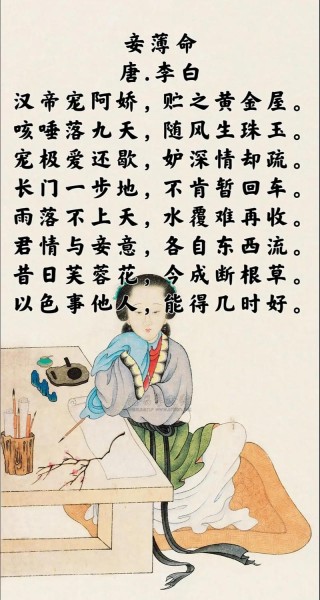 妾薄命
唐.李白
汉帝宠阿娇，贮之黄金屋。
咳唾落九天，随风生珠玉。
宠极爱还歇，妒深情却疏。
长门一步地，不肯暂回车。
雨落不上天，水覆难再收。
君情与妾意，各自东西流。
昔日芙蓉花，今成断根草。
以色事他人，能得几时好。